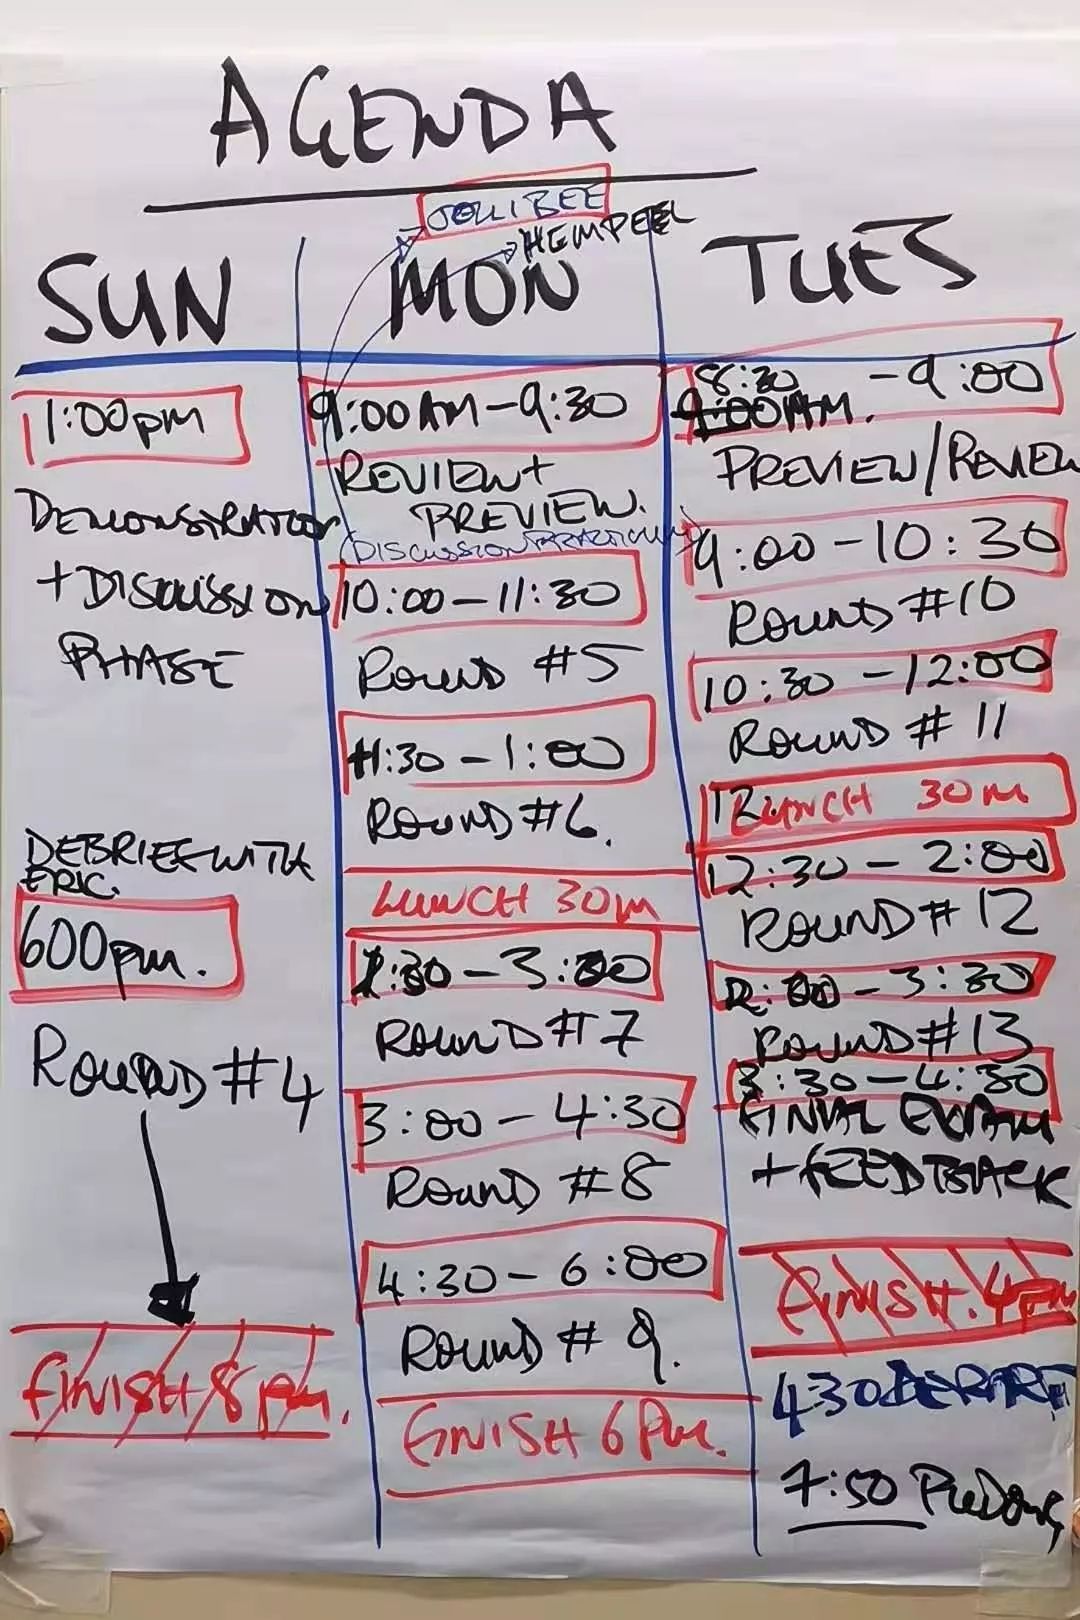 AGENDA
JOLLIBEE
HEMPEEL
SUN
1:00pm
DEMONSTRATION
+ DISCUSSION
PHASE
DEBRIEF WITH
ERIC.
600pm.
ROUND #4
FINISH 8pm.
MON
9:00AM-9:30
REVIEW+
PREVIEW.
(DISCUSSION
10:00-11:30
ROUND #5
11:30-1:00
ROUND #6.
LUNCH 30m
1:30-3:00
ROUND #7
3:00-4:30
ROUND #8
4:30-6:00
ROUND # 9.
FINISH 6pm.
TUES
8:30 -9:00
9:00AM.
PREVIEW/REVIEW
9:00-10:30
ROUND #10
10:30-12:00
ROUND #11
LUNCH 30m
12:30-2:00
ROUND #12
2:00-3:30
ROUND #13
3:30-4:30
FINAL EXAM
+ FEEDBACK
FINISH. 4pm
430 DEPART
7:50 PUDONG